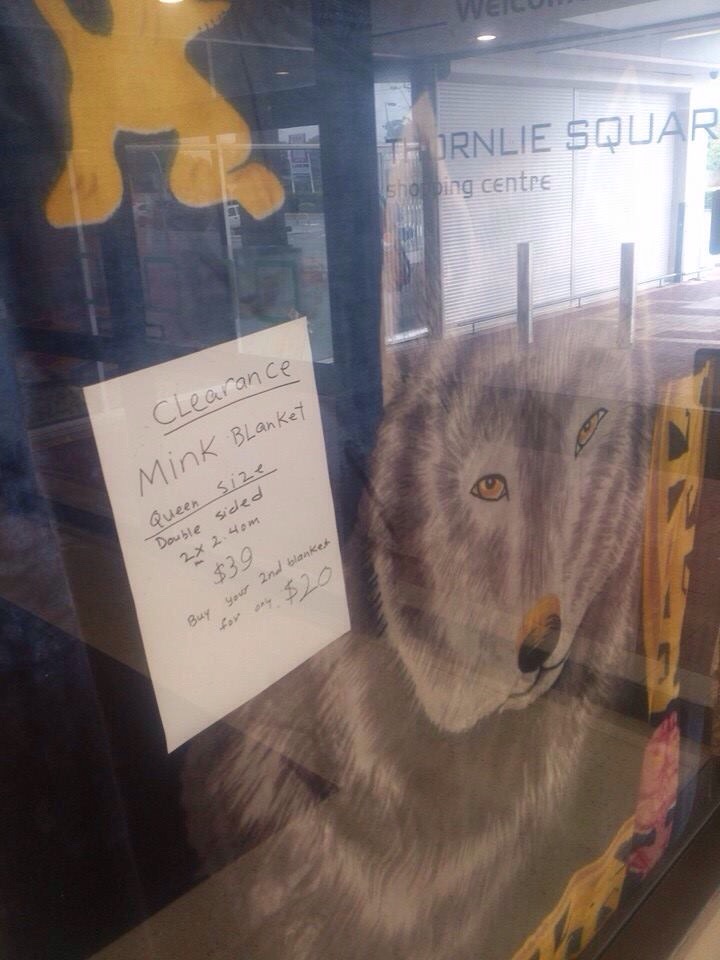 THORNLIE SQUAR
shopping centre
CLearance
Mink BLanket
Queen size
Double sided
2x 2.40m
$39
Buy your 2nd blanket
for only $20